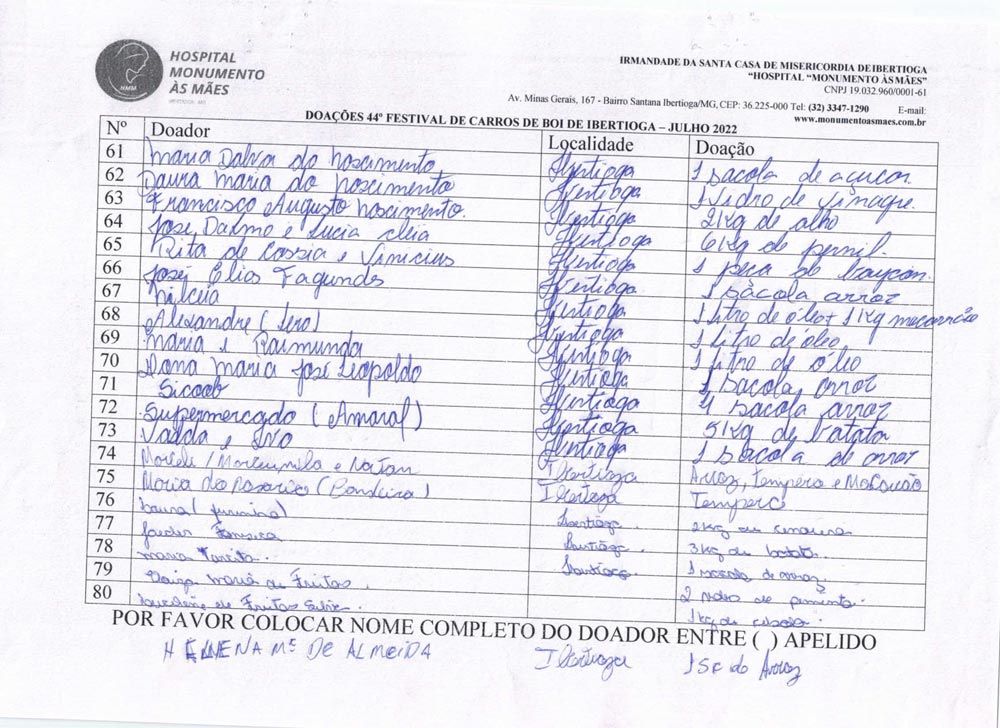 HOSPITAL
MONUMENTO
ÀS MÃES
IRMANDADE DA SANTA CASA DE MISERICORDIA DE IBERTIOGA
“HOSPITAL “MONUMENTO ÀS MÃES”
CNPJ 19.032.960/0001-61
Av. Minas Gerais, 167 - Bairro Santana Ibertioga/MG, CEP: 36.225-000 Tel: (32) 3347-1290 E-mail:
www.monumentoasmaes.com.br
DOAÇÕES 44º FESTIVAL DE CARROS DE BOI DE IBERTIOGA – JULHO 2022
Nº Doador Localidade Doação
61 Maria Dalva do Nascimento Ibertioga 1 sacola de açucar
62 Daura Maria do Nascimento Ibertioga 1 vidro de vinagre.
63 Francisco Augusto Nascimento. Ibertioga 2 Kg de alho
64 José Dalmo e Lucia Cleia Ibertioga 6 Kg de pernil.
65 Rita de Cassia e Vinicius Ibertioga 1 peça de
66 José Elias Fagundes Ibertioga 1 sacola arroz
67 Nilceia Ibertioga 1 litro de óleo + 1 Kg macarrão
68 Alexandre (Lero) Ibertioga 1 litro de óleo
69 Maria e Raimunda Ibertioga 1 litro de óleo
70 Dona Maria José Leopoldo Ibertioga 1 sacola arroz
71 Sicoob Ibertioga 1 sacola arroz
72 Supermercado (Amaral) Ibertioga 5 Kg de batata
73 Valda e Ivo Ibertioga 1 sacola de arroz
74 e Natan Ibertioga Arroz, Tempero e Macarrão
75 Maria do Rosario (Bandeira) Ibertioga Tempero
76 Laura Ibertioga 2 kg de cenoura
77 Fonseca Ibertioga. 3 kg de batata.
78 Maria Ibertioga. 1 sacola de arroz
79 Maria de Freitas. 2 vidro de pimenta.
80 de Freitas 1 kg de cebola.
POR FAVOR COLOCAR NOME COMPLETO DO DOADOR ENTRE ( ) APELIDO
HELENA Mª DE ALMEIDA Ibertioga 1 de Arroz